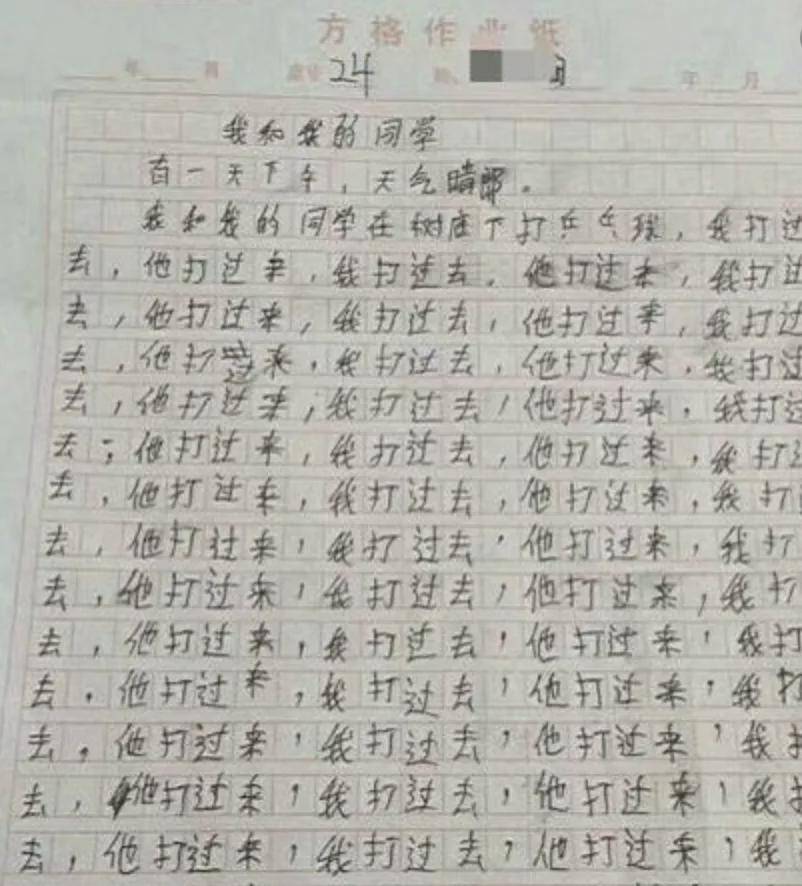 方格作业纸
年 月 24 年 月
我和我的同学
有一天下午，天气晴朗。
我和我的同学在树底下打乒乓球，我打过
去，他打过来，我打过去，他打过来，我打过
去，他打过来，我打过去，他打过来，我打过
去，他打过来，我打过去，他打过来，我打过
去，他打过来，我打过去，他打过来，我打过
去，他打过来，我打过去，他打过来，我打过
去，他打过来，我打过去，他打过来，我打
去，他打过来，我打过去，他打过来，我打
去，他打过来，我打过去，他打过来，我打
去，他打过来，我打过去，他打过来，我打
去，他打过来，我打过去，他打过来，我打
去，他打过来，我打过去，他打过来，我打
去，他打过来，我打过去，他打过来，我打
去，他打过来，我打过去，他打过来，我